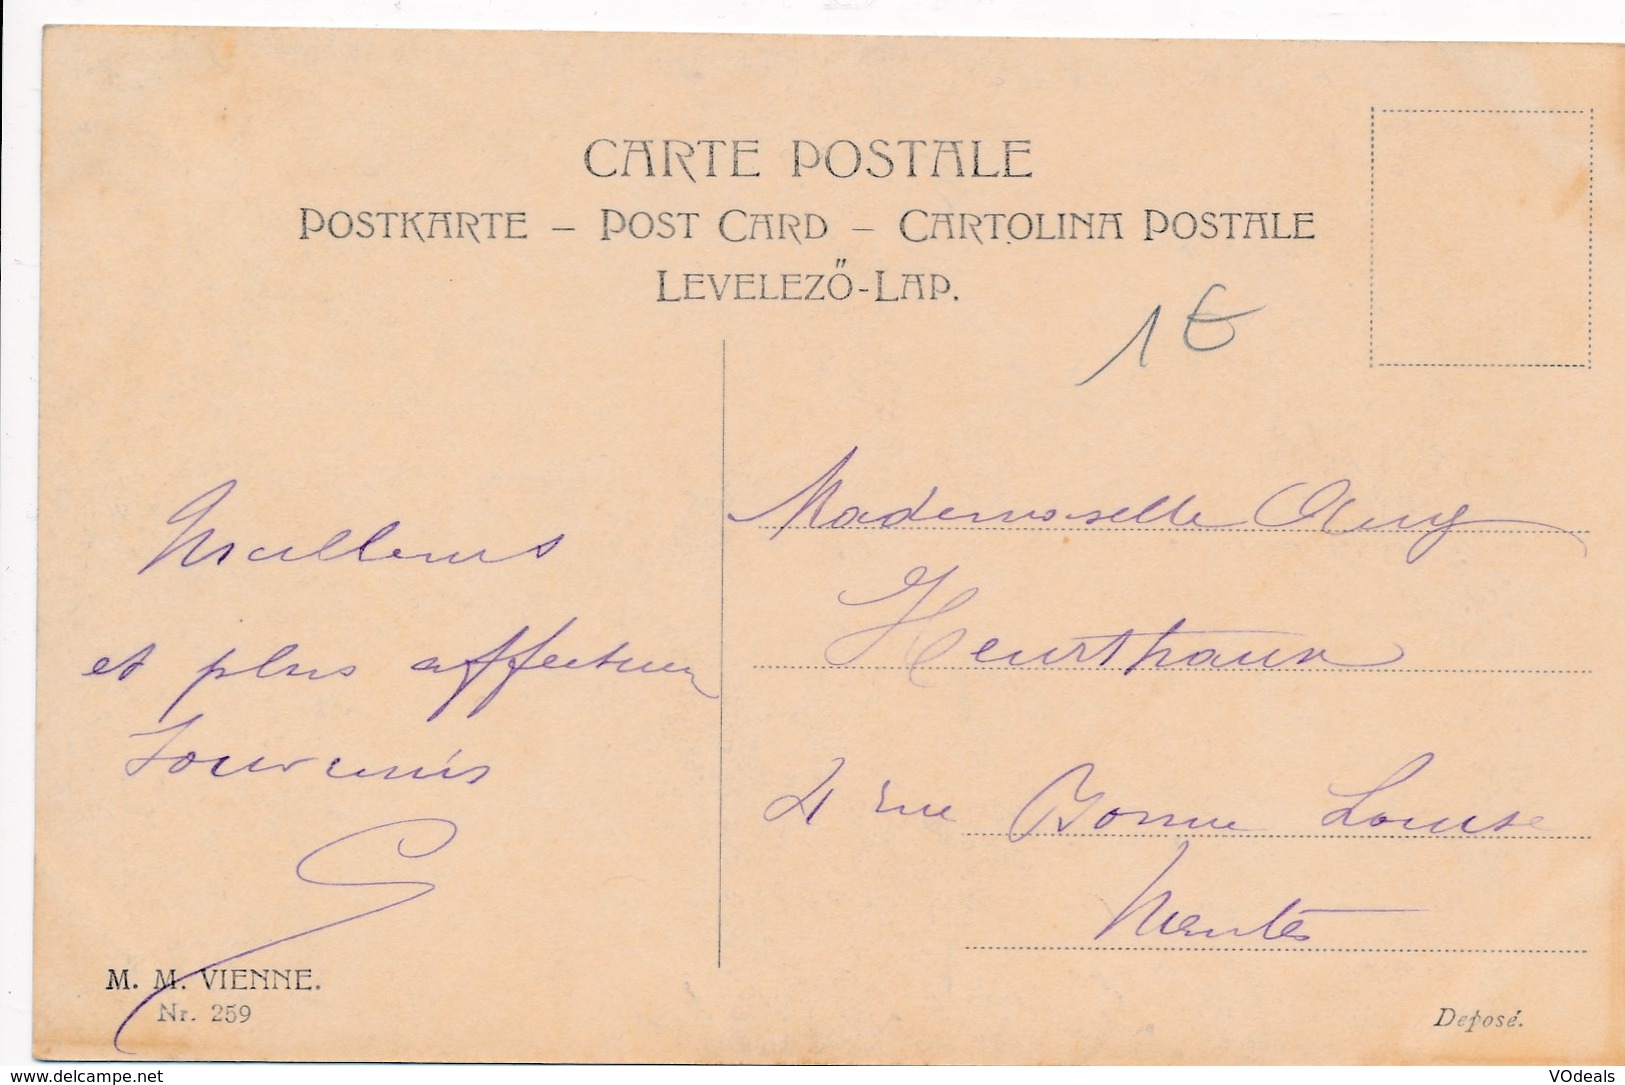 CARTE POSTALE
POSTKARTE – POST CARD – CARTOLINA POSTALE
LEVELEZŐ-LAP.
1€
Meilleurs
et plus affectueux
souvenirs
Mademoiselle
Heurthaux
4 rue Bonne Louise
Nantes
M. M. VIENNE.
Nr. 259
Deposé.
www.delcampe.net
VOdeals